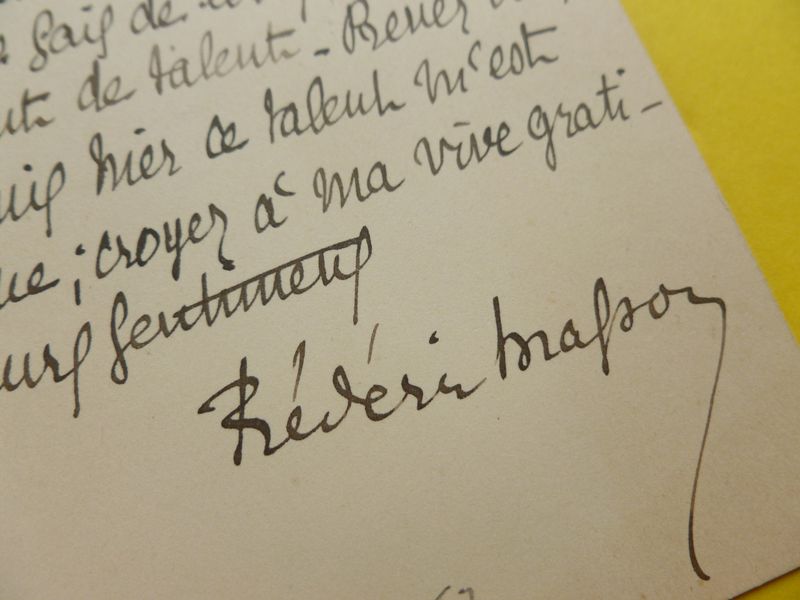 fais de
de talent - Prenez
hier ce talent m'est
croyez à ma vive grati-
sentiments
Frédéric Masson